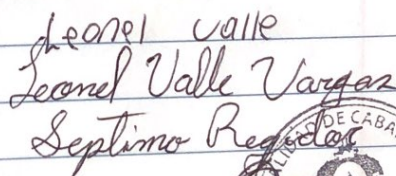 Leonel Valle
Leonel Valle Vargas
Septimo Regidor
DE CABA